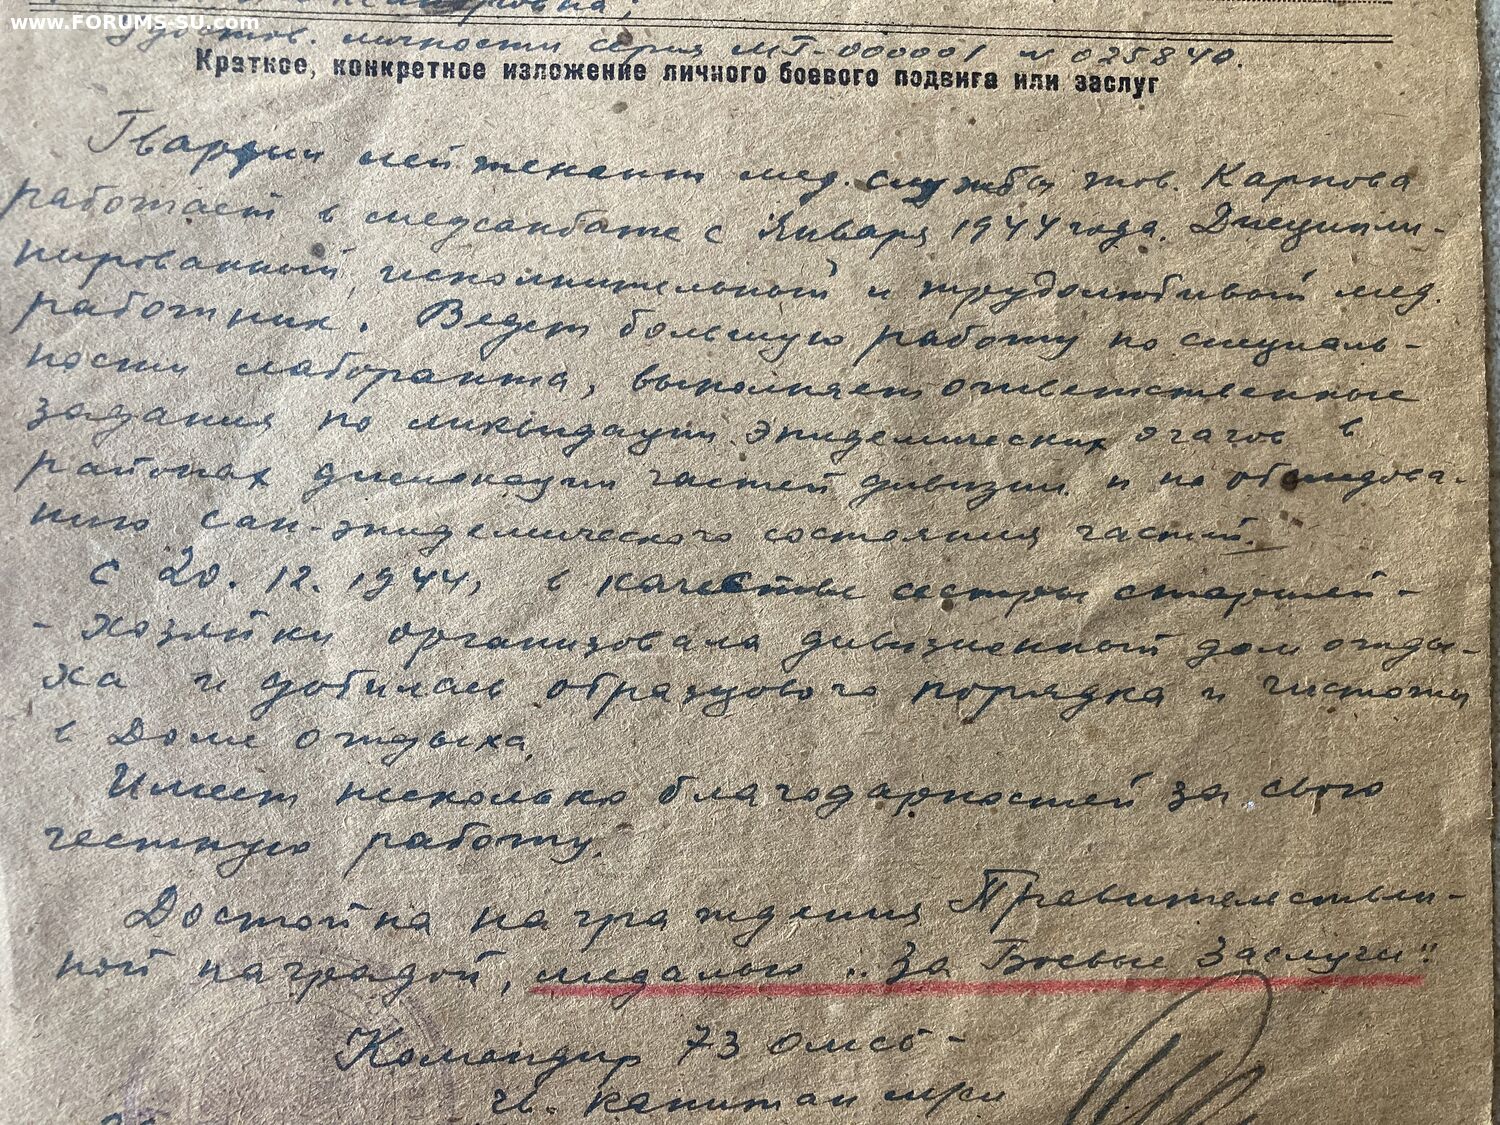 www.FORUMS-SU.com
Удостов. личности серия МГ-000001 N 025840.
Краткое, конкретное изложение личного боевого подвига или заслуг
Гвардии лейтенант мед. службы тов. Карпова
работает в медсанбате с Января 1944 года. Дисципли-
нированный, исполнительный и трудолюбивый мед.
работник. Ведет большую работу по специаль-
ности лаборанта, выполняет ответственные
задания по ликвидации эпидемических очагов в
районах дислокации частей дивизии и по обследова-
нию сан-эпидемического состояния частей.
С 20.12.1944, в качестве сестры старшей-
- хозяйки организовала дивизионный дом отды-
ха и добилась образцового порядка и чистоты
в Доме отдыха.
Имеет несколько благодарностей за свою
честную работу.
Достойна награждения Правительствен-
ной наградой, медалью „За Боевые Заслуги".
Командир 73 омсб -
гв. капитан м/с